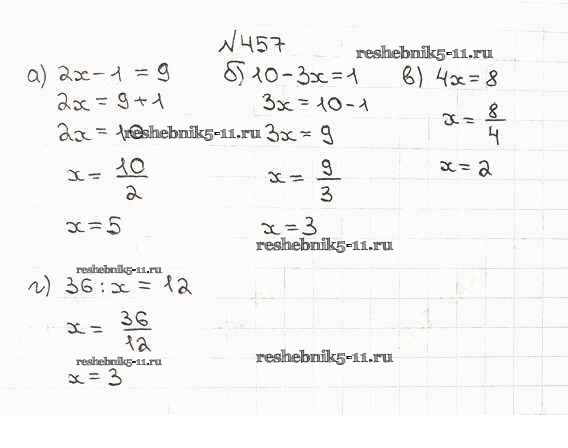 №457
reshebnik5-11.ru
а) 2x-1=9
2x=9+1
2x=10
x=10/2
x=5
reshebnik5-11.ru
б) 10-3x=1
3x=10-1
3x=9
x=9/3
x=3
reshebnik5-11.ru
в) 4x=8
x=8/4
x=2
reshebnik5-11.ru
г) 36:x=12
x=36/12
reshebnik5-11.ru
x=3
reshebnik5-11.ru